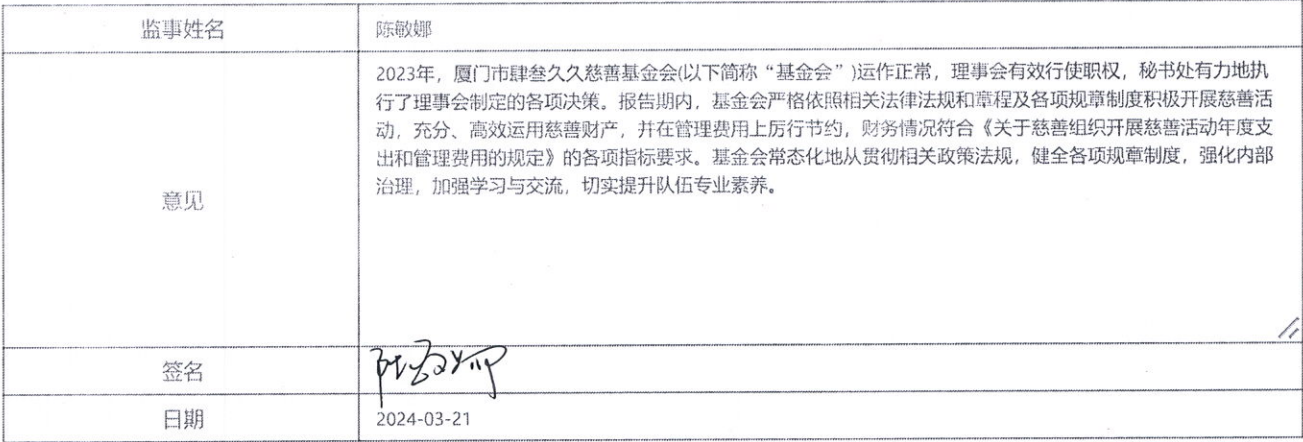 监事姓名
陈敏娜
意见
2023年，厦门市肆叁久久慈善基金会(以下简称“基金会”)运作正常，理事会有效行使职权，秘书处有力地执
行了理事会制定的各项决策。报告期内，基金会严格依照相关法律法规和章程及各项规章制度积极开展慈善活
动，充分、高效运用慈善财产，并在管理费用上厉行节约，财务情况符合《关于慈善组织开展慈善活动年度支
出和管理费用的规定》的各项指标要求。基金会常态化地从贯彻相关政策法规，健全各项规章制度，强化内部
治理，加强学习与交流，切实提升队伍专业素养。
签名
陈敏娜
日期
2024-03-21